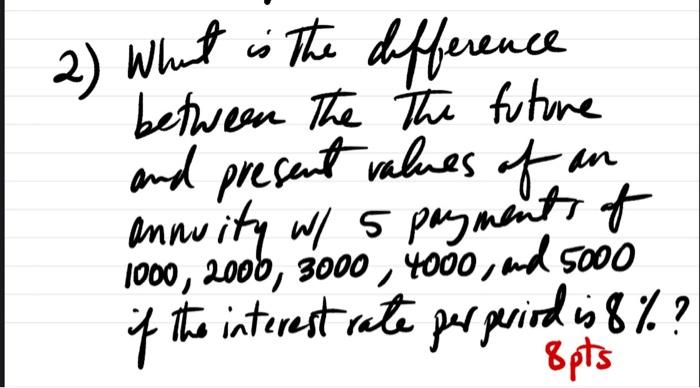 2) What is the difference
between the the future
and present values of an
annuity w/ 5 payments of
1000, 2000, 3000, 4000, and 5000
if the interest rate per period is 8%?
8pts